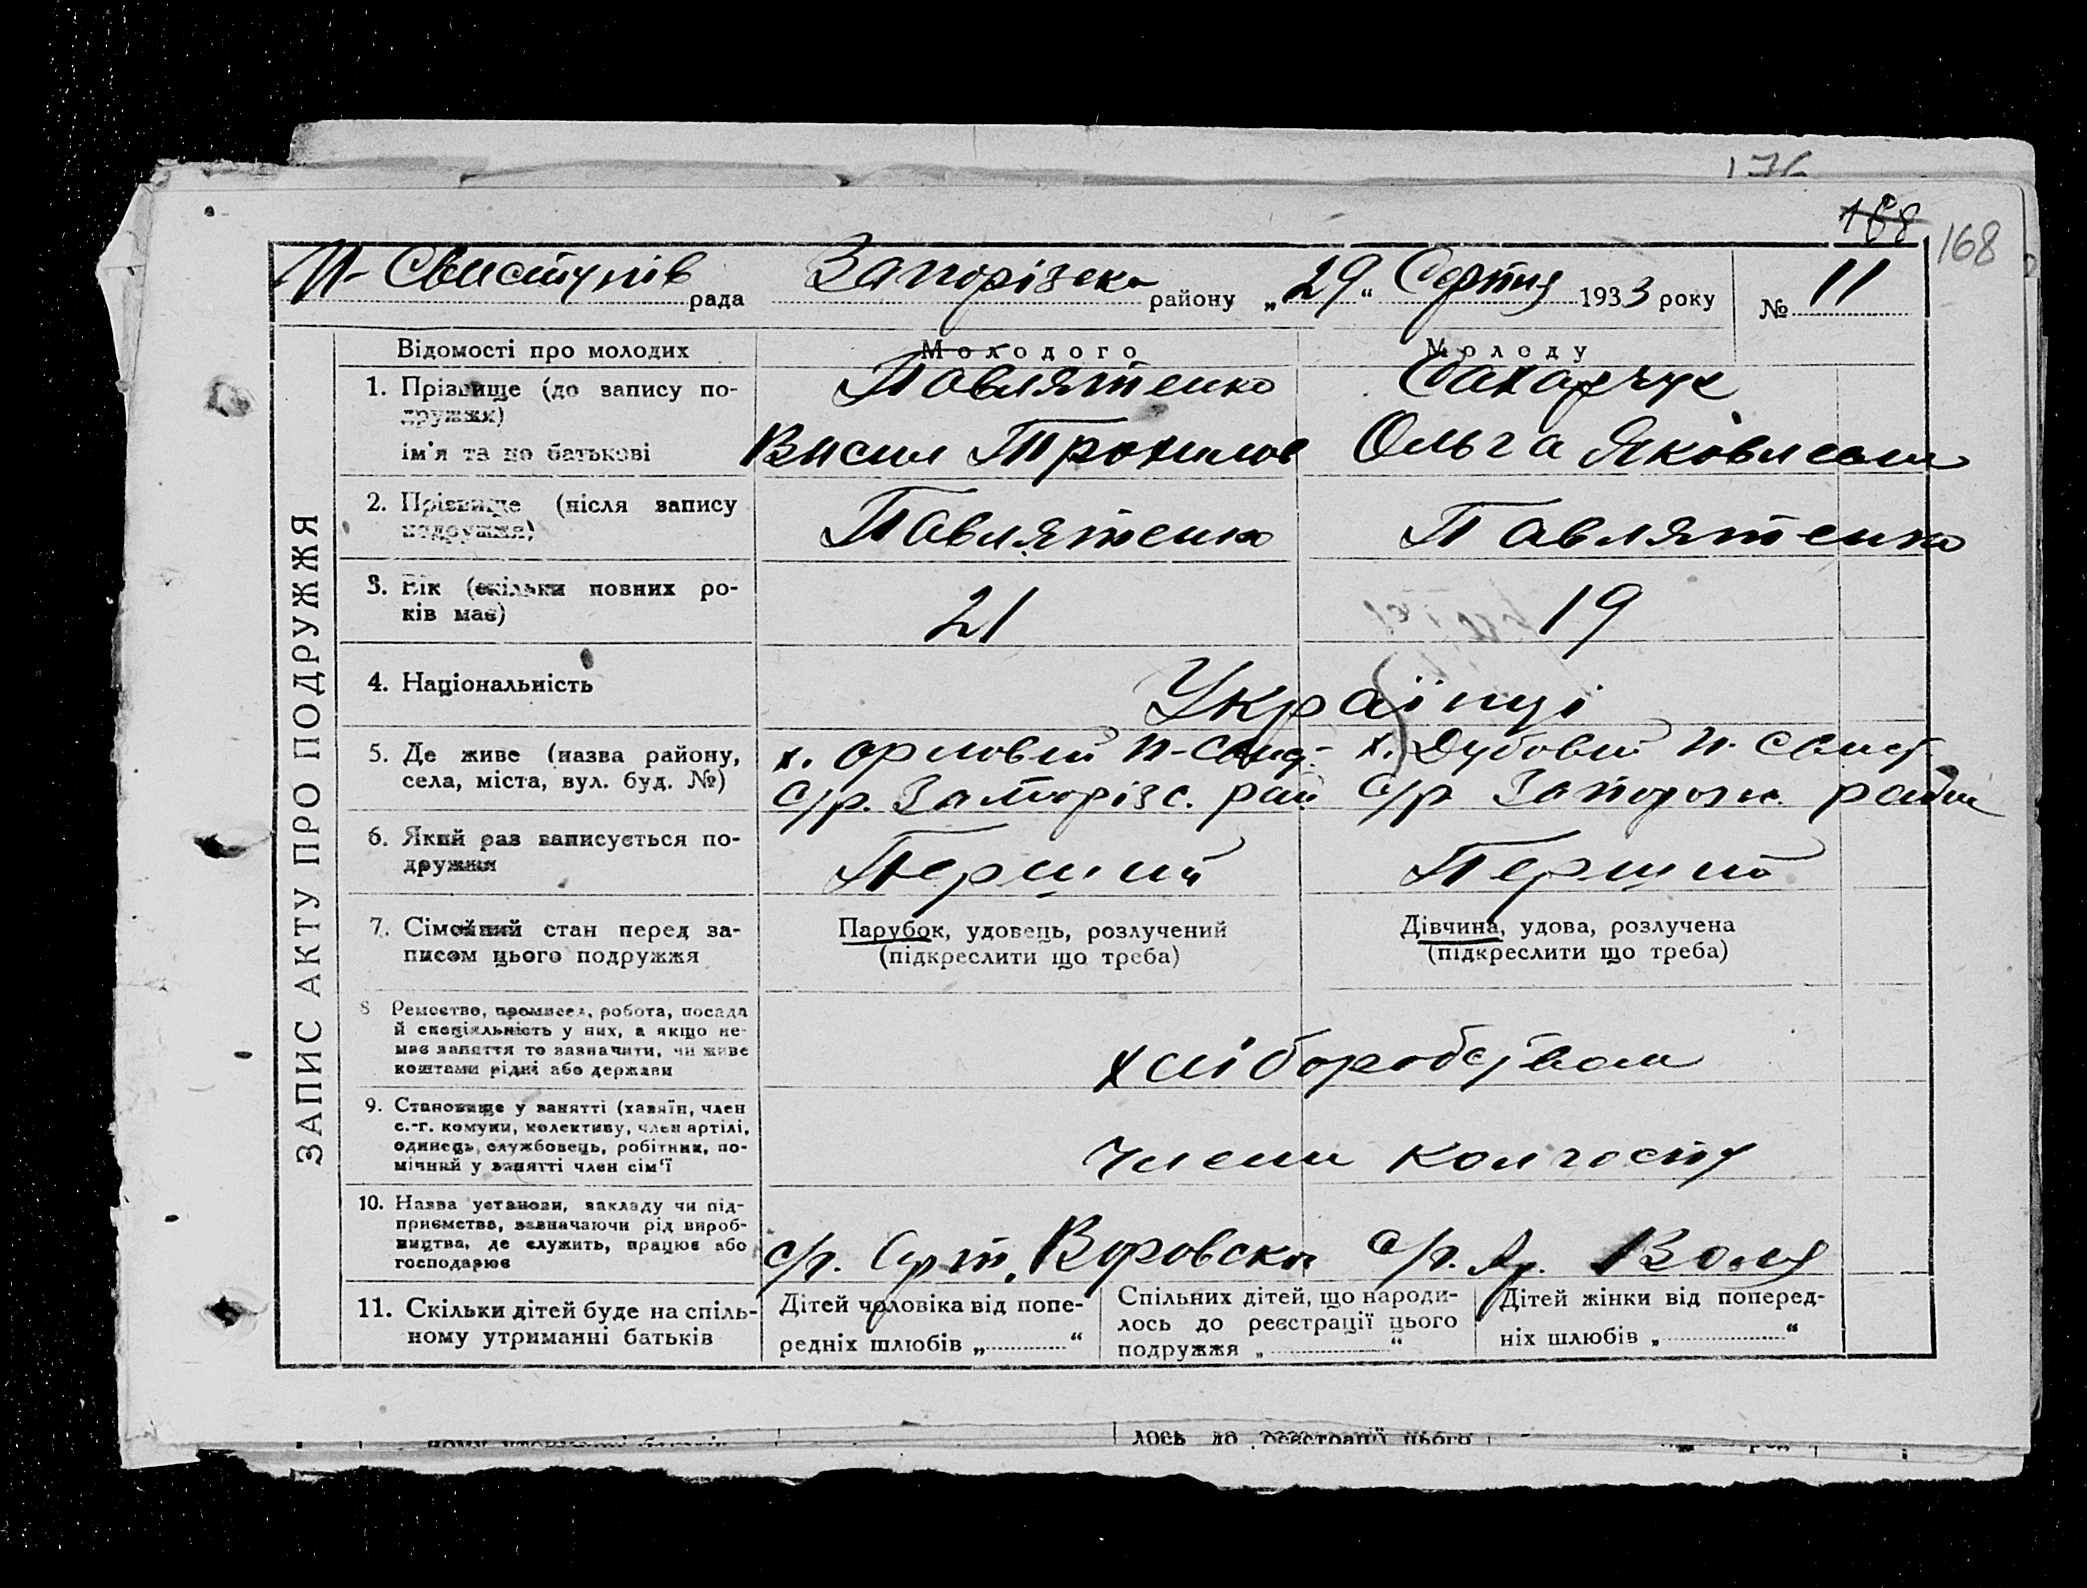 176
188 168
Н-Свистунів рада Запорізька району „29“ Серпня 1933 року № 11
ЗАПИС АКТУ ПРО ПОДРУЖЖЯ
Відомості про молодих Молодого Молоду
1. Прізвище (до запису по-
дружжя) Павлятенко Сахарчук
ім'я та по батькові Васил Трохимов Ольга Яковлевна
2. Прізвище (після запису
подружжя) Павлятенко Павлятенко
3. Вік (скільки повних ро-
ків має) 21 19
4. Національність Українці
5. Де живе (назва району, х. Орловий Н-Свист. х. Дубовий Н. Свист
села, міста, вул. буд. №) с/р. Запорізс. рай с/р Запорож. район
6. Який раз записується по-
дружжя Перший Перший
7. Сімейний стан перед за- Парубок, удовець, розлучений Дівчина, удова, розлучена
писом цього подружжя (підкреслити що треба) (підкреслити що треба)
8 Ремество, промисел, робота, посада
й спеціяльність у них, а якщо не-
має заняття то зазначити, чи живе
коштами рідні або держави хліборобством
9. Становище у занятті (хазяїн, член
с.-г. комуни, колективу, член артілі,
одинець, службовець, робітник, по-
мічний у занятті член сім'ї члени колгоспу
10. Назва установи, закладу чи під-
приємства, зазначаючи рід вироб-
ництва, де служить, працює або
господарює с/г. Арт. Воровська с/г. Ар. Воля
11. Скільки дітей буде на спіль- Дітей чоловіка від попе- Спільних дітей, що народи- Дітей жінки від поперед-
ному утриманні батьків редніх шлюбів „ “ лось до реєстрації цього ніх шлюбів „ “
подружжя „ “
ному утриманні батьків лось до реєстрації цього